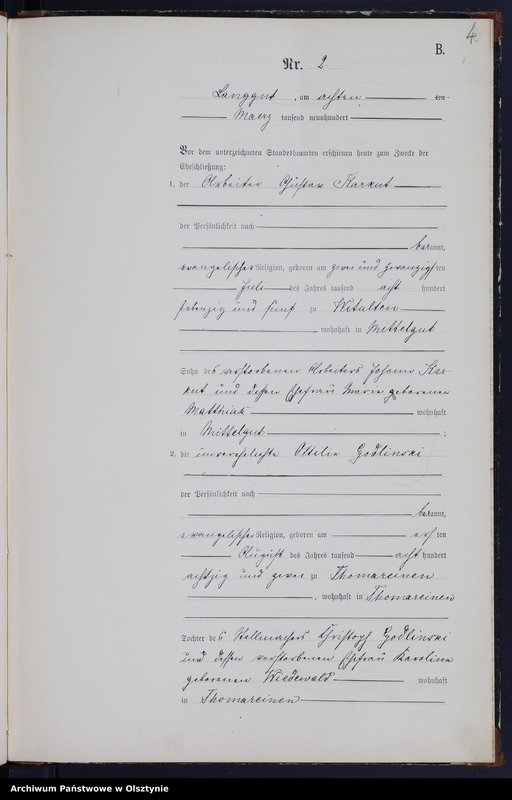 4.
B.
Nr. 2
Langgut, am achten ten
Maerz tausend neunhundert
Vor dem unterzeichneten Standesbeamten erschienen heute zum Zwecke der
Eheschließung:
1. der Arbeiter Gustav Karkut
der Persönlichkeit nach
bekannt,
evangelischer Religion, geboren am zwei und zwanzigsten
Juli des Jahres tausend acht hundert
siebenzig und fünf zu Witulten
, wohnhaft in Mittelgut
Sohn des verstorbenen Arbeiters Johann Kar-
kut und dessen Ehefrau Marie geborenen
Matthias wohnhaft
in Mittelgut ;
2. die unverehelichte Ottilie Godlinski
der Persönlichkeit nach
bekannt,
evangelischer Religion, geboren am ten
August des Jahres tausend acht hundert
achtzig und zwei zu Thomareinen
, wohnhaft in Thomareinen
Tochter des Stellmachers Christoph Godlinski
und dessen verstorbenen Ehefrau Karoline
geborenen Wiedewald wohnhaft
in Thomareinen
Archiwum Państwowe w Olsztynie